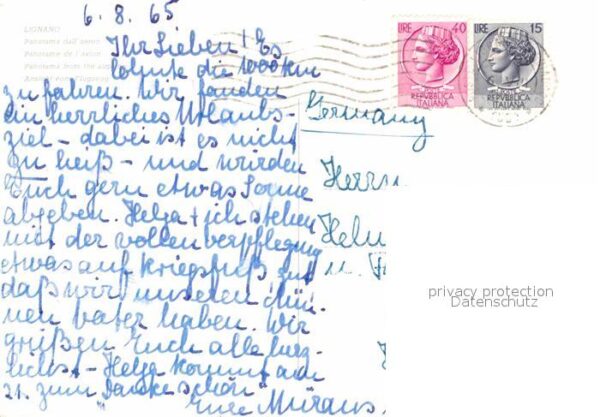 6.8.65
LIGNANO
Panorama dall'aereo
Panorama de l'avion
Panorama from the air
Ihr Lieben! Es
lohnte die 1000 km
zu fahren. Wir fanden
ein herrliches Urlaubs-
ziel - dabei ist es nicht
zu heiß - und würden
Euch gern etwas Sonne
abgeben. Helga + ich stehen
mit der vollen verpflegung
etwas auf Kriegsfuß gut
daß wir unseren
vater haben. Wir
grüßen Euch alle herz-
lichst - Helga kommt am
21. zum Dankeschön"
Eure
LIRE 40
REPVBBLICA
ITALIANA
LIRE 15
REPVBBLICA
ITALIANA
Germany
Herrn
Helm
privacy protection
Datenschutz